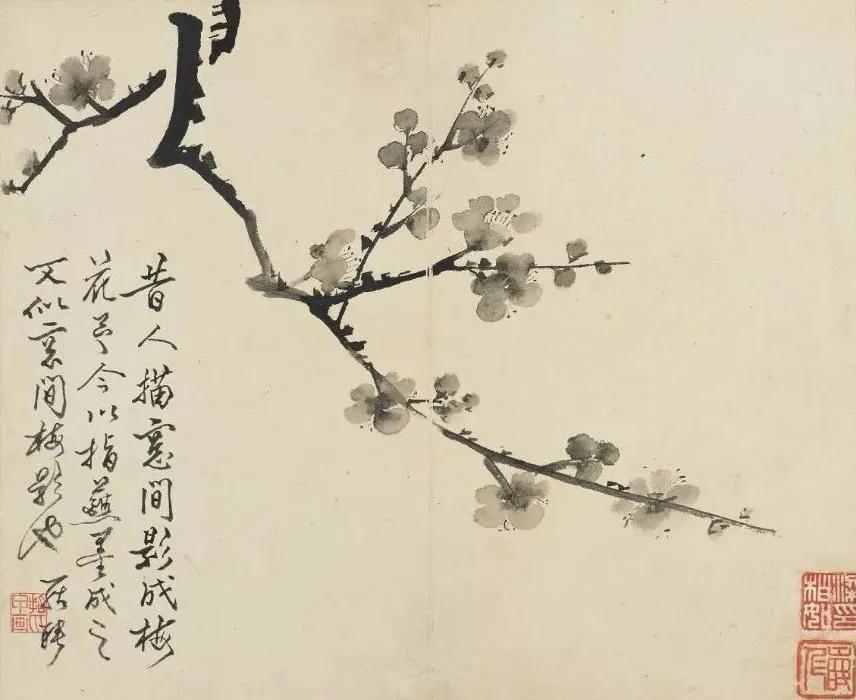 昔人描窗間影成梅
花今以指蘸墨成之
又似窗間梅影也